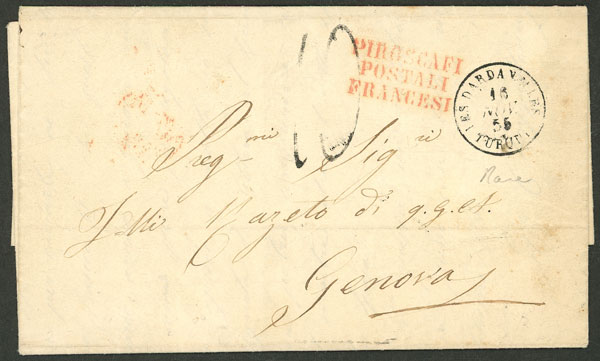 PIROSCAFI
POSTALI
FRANCESI
10
LES DARDANELLES
16
NOV
55
TURQUIE
Rare
Preg.mi Sig.ri
F.lli di q.g.
Genova